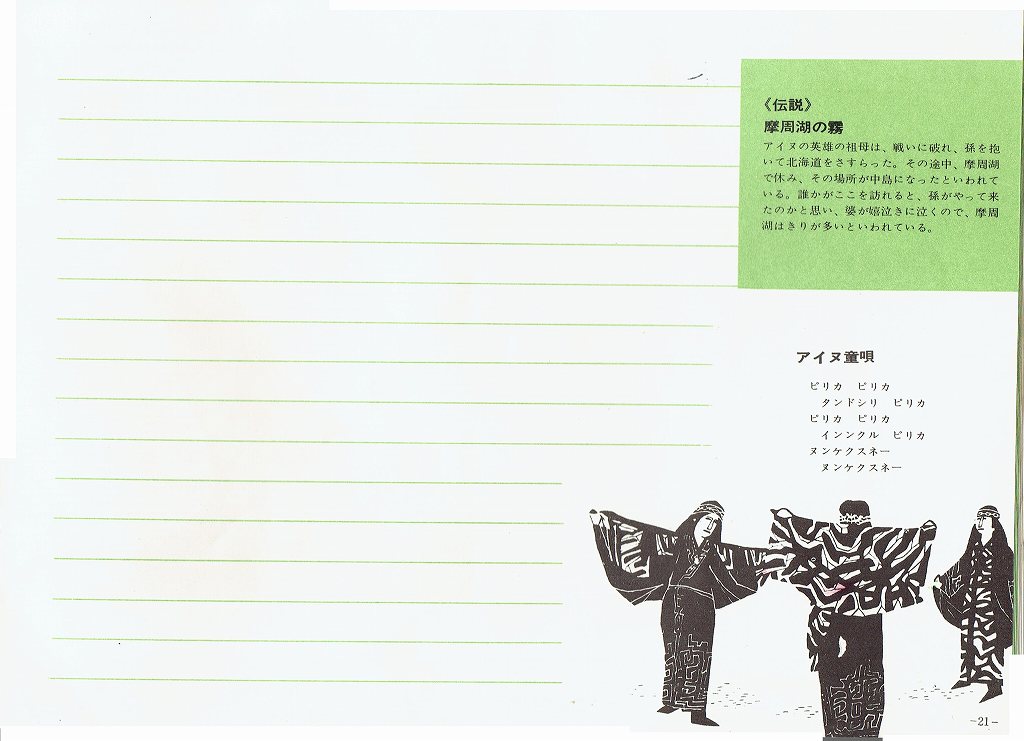 《伝説》
摩周湖の霧
アイヌの英雄の祖母は、戦いに破れ、孫を抱
いて北海道をさすらった。その途中、摩周湖
で休み、その場所が中島になったといわれて
いる。誰かがここを訪れると、孫がやって来
たのかと思い、婆が嬉泣きに泣くので、摩周
湖はきりが多いといわれている。
アイヌ童唄
ピリカ　ピリカ
タンドシリ　ピリカ
ピリカ　ピリカ
インンクル　ピリカ
ヌンケクスネー
ヌンケクスネー
－21－